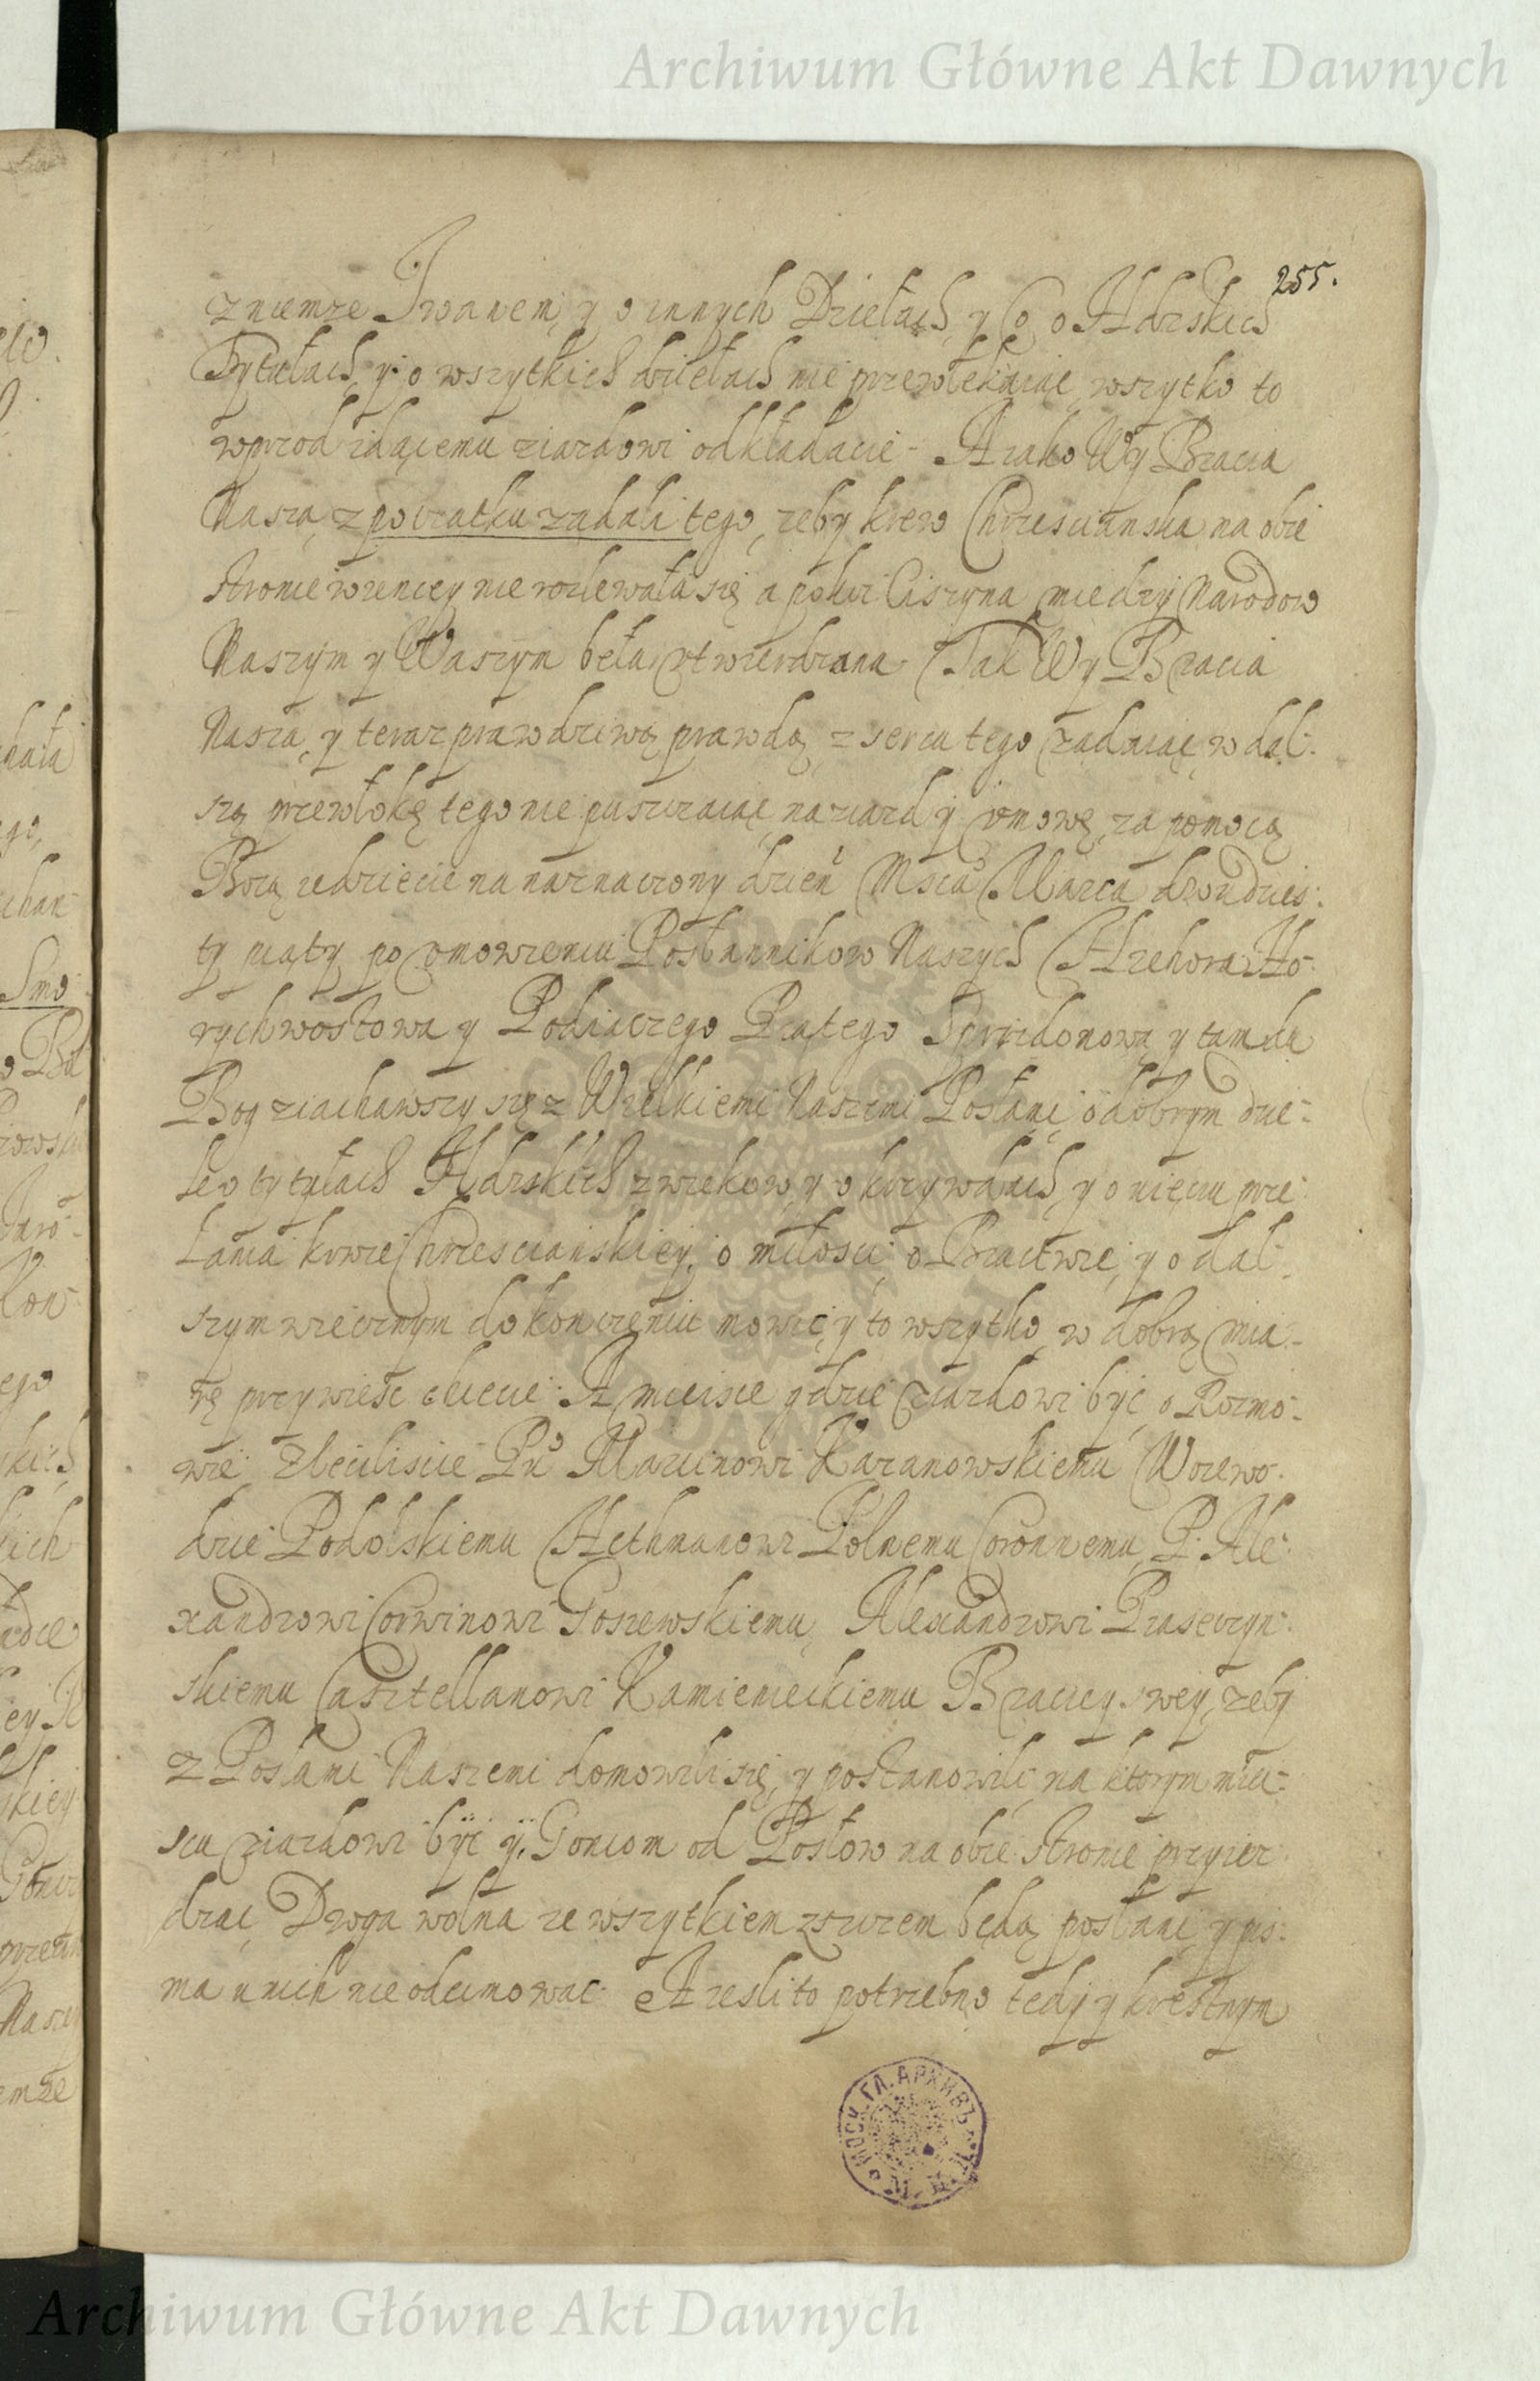 Archiwum Główne Akt Dawnych
255.
z niemze Iwanem, y o innych Dziełach, y o Hdrskich
Tytułach, y o wszytkich dziełach nie przewlekaiąc wszytko to
wprzod idąćemu ziazdowi odkładaćie - A iako Wy Bracia
Nasza, z początku ządali tego, zeby krew Chrzescianska na obie
stronie wiencey nie rozlewała się a pokoi Ciszyna miedzy Narodow
Naszym y Waszym beła vtwierdzana. Tak Wy Bracia
Nasza, y teraz prawdziwą prawdą, z serca tego ządaiąc, w dal:
szą przewłokę tego nie puszczaiąc, na ziazd y vmowę, za pomocą
Bozą zedziecie na naznaczony dzien Msca Marca dwudzies:
ty piąty po vmowieniu Posłannikow Naszych Hrehora Ho:
rychwostowa y Podiaczego Piątego Spiridonowa, y tam da
Bog ziachawszy się z Wielkiemi Naszemi Posłami, o dobrym dzie:
le o tytułach Hdrskich z wiekow, y o krzywdach, y o uięciu prze:
łania krwie Chrzescianskiey, o miłosci, o Bractwie, y o dal:
szym wiecznym dokonczeniu mowić, y to wszytko, w dobrą mia:
rę przywiesc chcecie. A mieisce gdzie ziazdowi być, o Rozmo:
wie, zleciliscie Pu Marcinowi Kazanowskiemu Woiewo:
dzie Podolskiemu Hethmanowi Polnemu Coronnemu, P. Ale:
xandrowi Corwinowi Gosiewskiemu, Alexandrowi Piaseczyn:
skiemu Casztellanowi Kamienieckiemu Braciey swey, zeby
z Posłami Naszemi domowili się, y postanowili, na ktorym miei:
scu ziazdowi być y Goncom od Posłow na obie stronie przyiez
dzać, Droga wolna ze wszytkiem zszczem będą posłani, y pis:
ma u nich nie odeimować. A ieslito potrzebno tedy y krestnym
МОСК. ГЛ. АРХИВЪ
Archiwum Główne Akt Dawnych